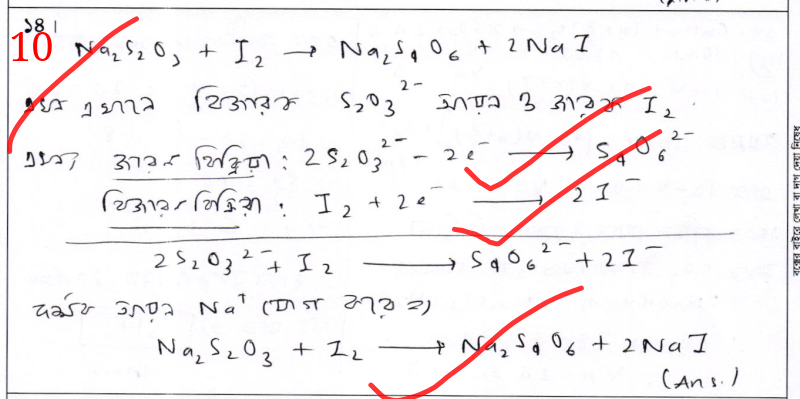 ১৪।
10
Na₂S₂O₃ + I₂ → Na₂S₄O₆ + 2NaI
এখন এখানে বিজারক S₂O₃²⁻ আয়ন ও জারক I₂
এখন, জারণ বিক্রিয়া : 2S₂O₃²⁻ − 2e⁻ → S₄O₆²⁻
বিজারণ বিক্রিয়া : I₂ + 2e⁻ → 2I⁻
2S₂O₃²⁻ + I₂ → S₄O₆²⁻ + 2I⁻
দর্শক আয়ন Na⁺ যোগ করে
Na₂S₂O₃ + I₂ → Na₂S₄O₆ + 2NaI
(Ans.)
বক্সের বাইরে লেখা বা দাগ দেয়া নিষেধ